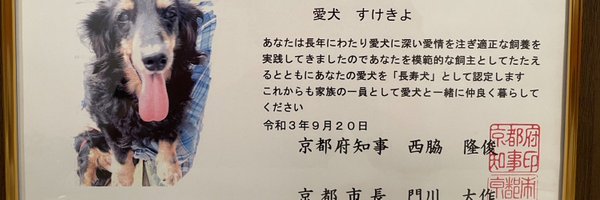 愛犬 すけきよ
あなたは長年にわたり愛犬に深い愛情を注ぎ適正な飼養を
実践してきましたのであなたを模範的な飼主としてたたえ
るとともにあなたの愛犬を「長寿犬」として認定します
これからも家族の一員として愛犬と一緒に仲良く暮らして
ください
令和3年9月20日
京都府知事 西脇 隆俊
京都府
知事印
京都市長 門川 大作
京都市